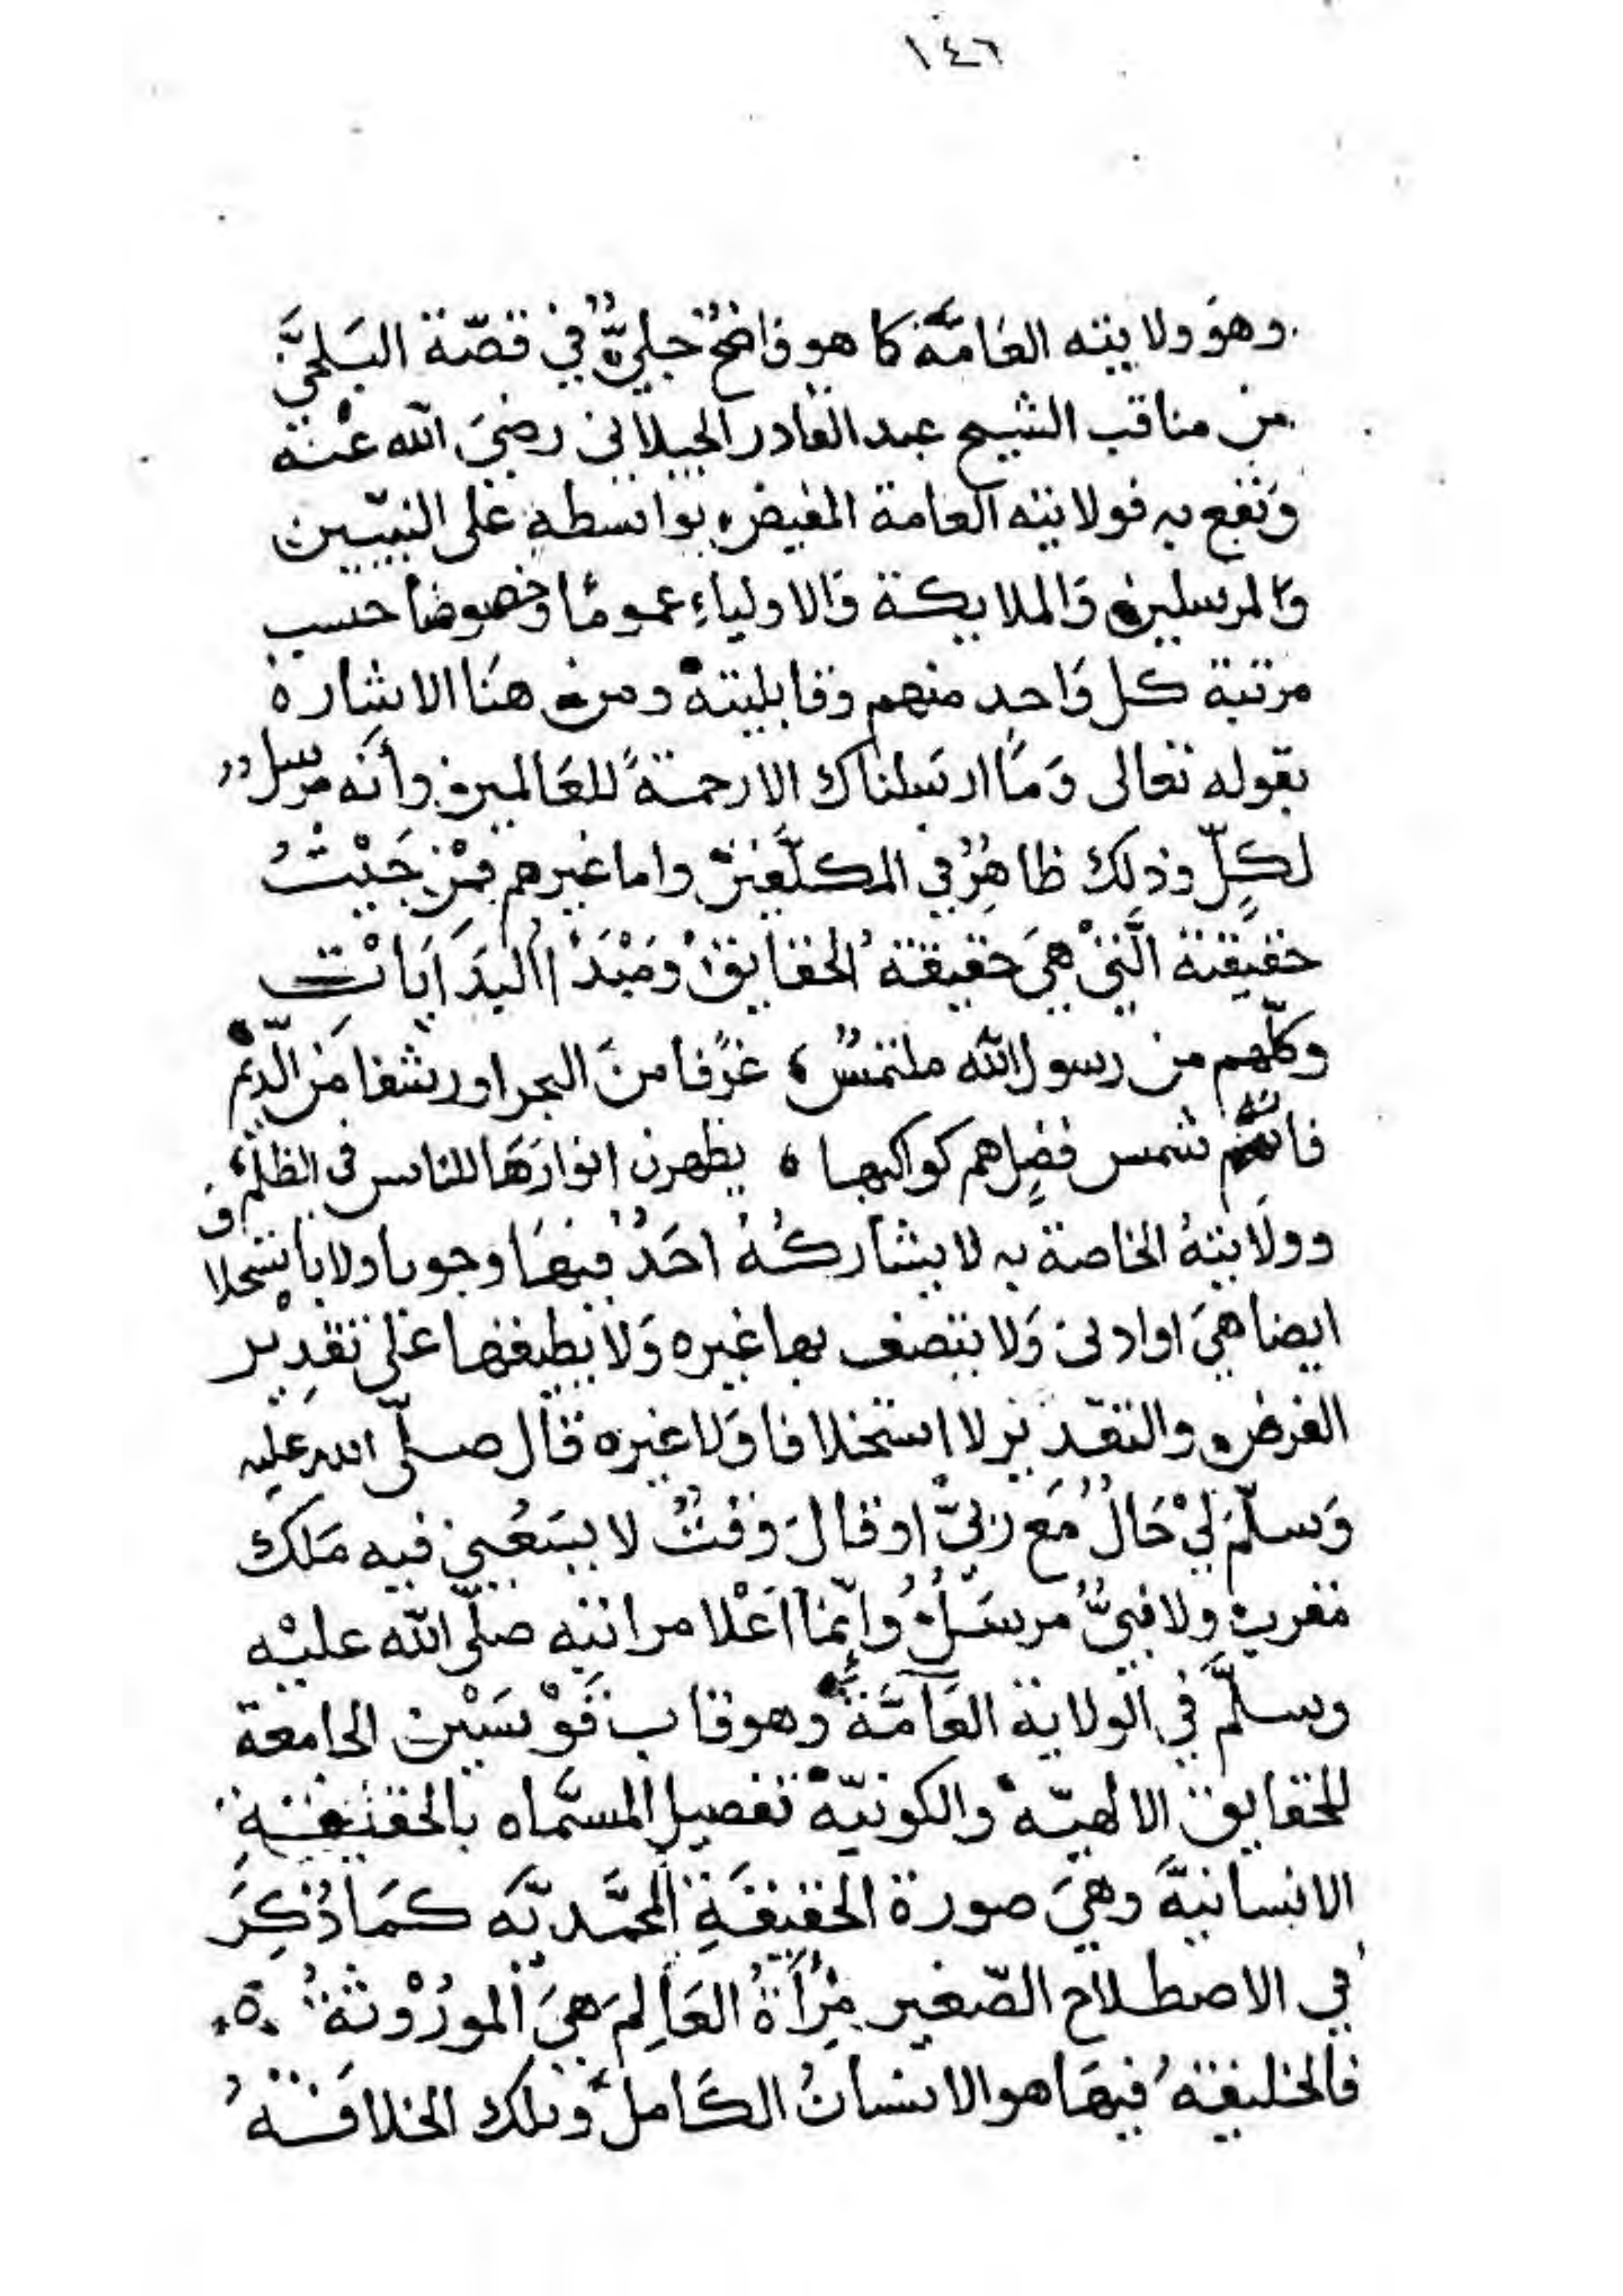 ١٤٦
وهوَ ولايته العَامَّة كما هو وَاضحٌ جليٌّ في قصّة البَلخيّ
من مناقب الشيخ عبد القادر الجيلاني رضيَ الله عنْهُ
وَنفع به فولايته العامة المفيض بواسطه على النبيّين
وَالمرسلين وَالملايكة وَالاولياءِ عمومًا وخصوصًا حسب
مرتبة كل وَاحدٍ منهم وقابليته ومن هنَا الاشارة
بقوله تعالى وَمَا ارسَلناك الا رحمةً للعَالمين وأنَّه مرسلٌ
لكلٍّ وذلك ظاهِرٌ في المكلّفين واما غيرهم فمِنْ حَيْثُ
حقيقته الَّتيْ هيَ حقيقة الحقايقْ ومَبْدَأ البدَايَاتْ
وكلّهم من رسول الله ملتمسٌ ؛ غرْفا منَ البحر اور رشفا مَن الدّيَمِ
فانّه شمس فضلٍ هم كواكبها ؛ يظهرن انوارَهَا للناس في الظلم وَ
وولَايتهُ الخاصة به لا يشاركُهُ احَدٌ فيهَا وجوبا ولا باستحلا
ايضا هيَ او ادنى وَلا يتصف بها غيره وَلا يطيقها عَلى تقدِيْر
الفرض والتقدير لا استخلافا وَلا غيره قال صلّى الله عليه
وَسلّمَ ليْ حَالٌ مَع رَبيّ او قالَ وَقتٌ لا يسَعُني فيه مَلَك
مقرب ولا نبيٌّ مرسَلٌ وإنّما اعْلا مراتبه صلّى الله عليْه
وسلَّم في الولاية العَامَّة وهو قاب قَوْسَيْن الجامعة
للحقايق الالهيّة والكونيّة تفصيل المسمَّاه بالحقيقيةِ
الانسانيَّة وهيَ صورة الحقيقَةِ المحمّديّة كمَا ذُكِرَ
في الاصطلاح الصّغير مِرْأةُ العَالِم هيَ الموْرُوْثةُ ٥
فالخليفةُ فيهَا هو الانسانُ الكَامل وتلك الخلافةُ